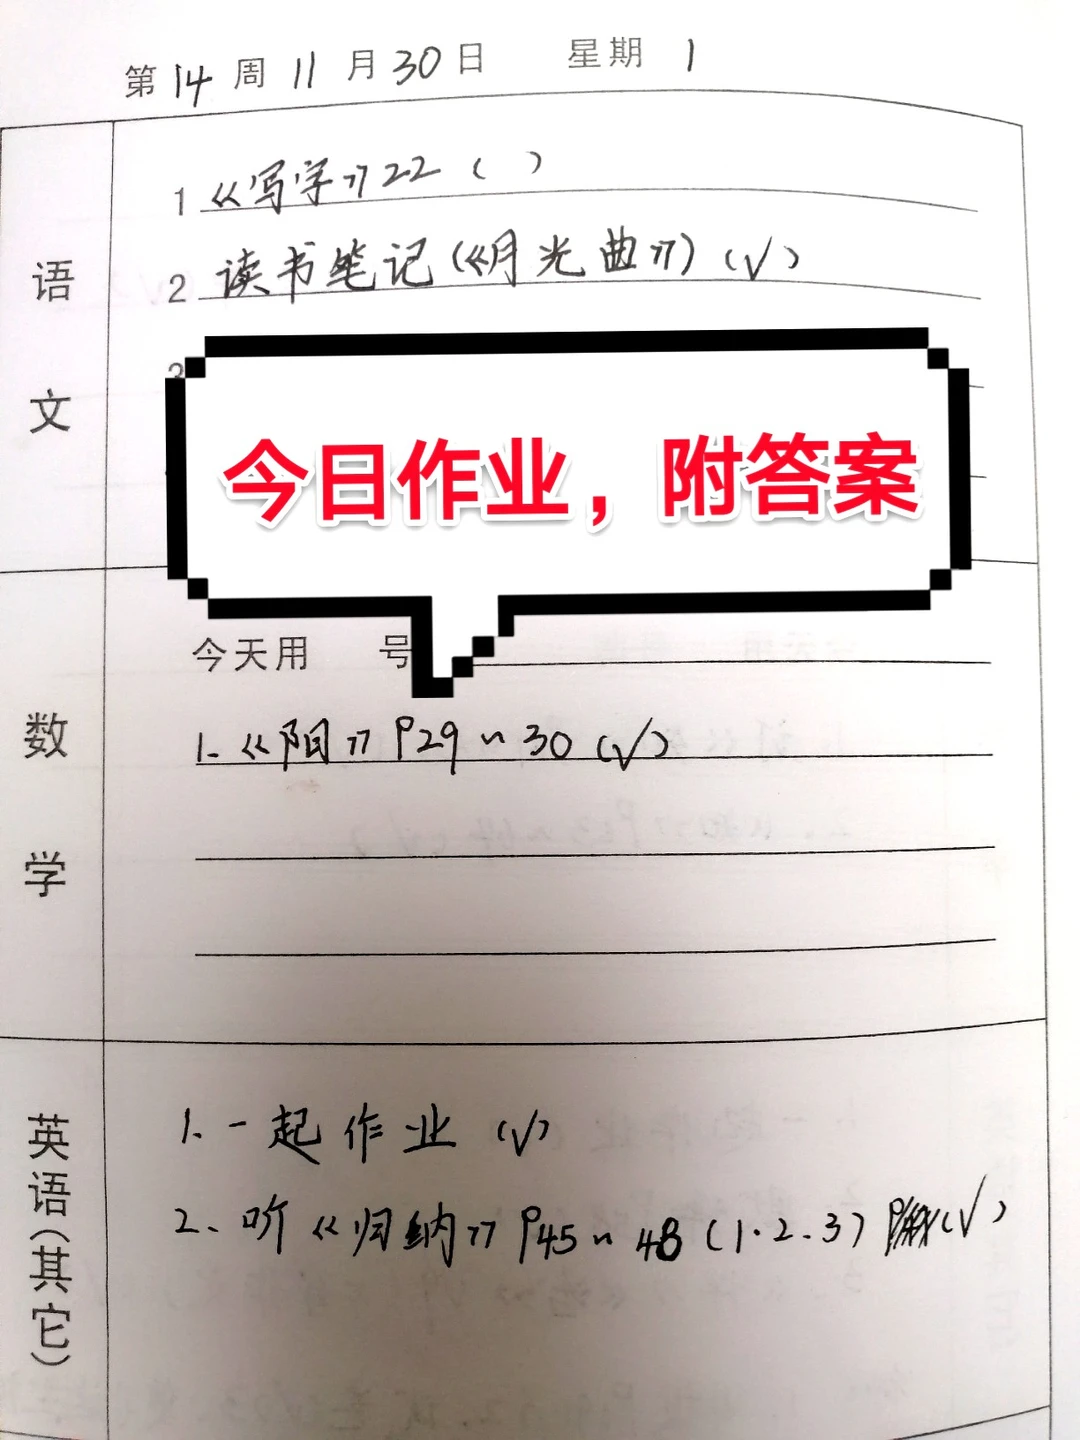 第14周11月30日 星期1
语文
1 《写字》22( )
2 读书笔记(《月光曲》)(√)
3
今日作业，附答案
数学
今天用 号
1.《阳》P29~30(√)
英语(其它)
1.一起作业(√)
2.听《归纳》P45~48(1.2.3)(√)